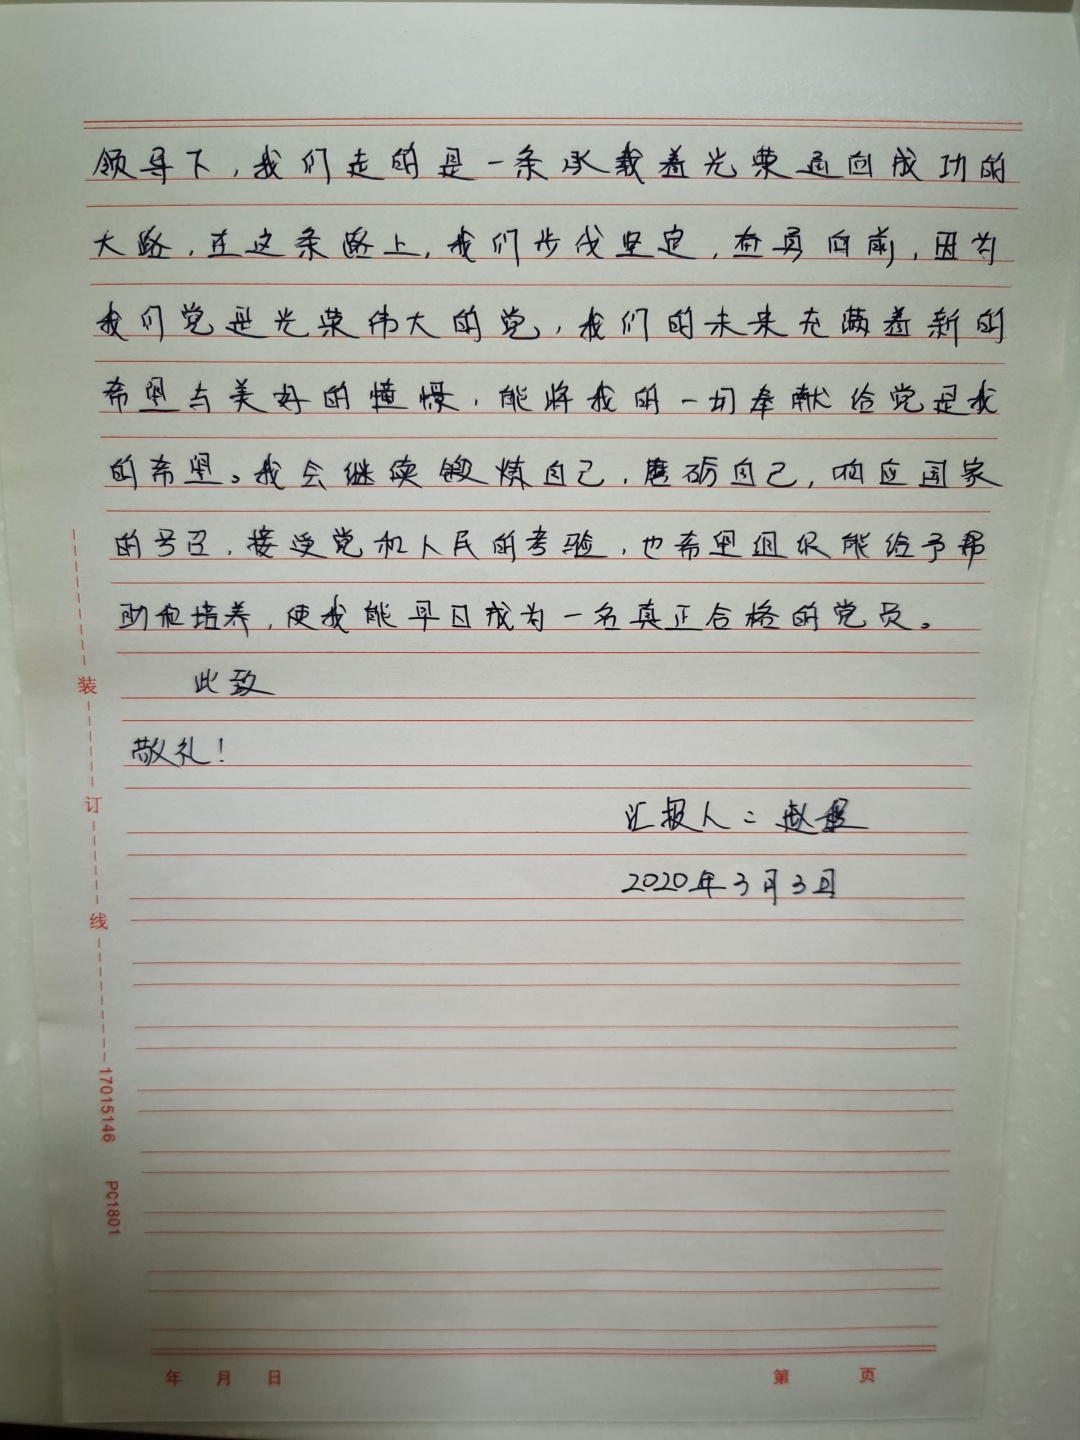 领导下，我们走的是一条承载着光荣通向成功的
大路，在这条路上，我们步伐坚定，奋勇向前，因为
我们党是光荣伟大的党，我们的未来充满着新的
希望与美好的憧憬，能将我的一切奉献给党是我
的希望。我会继续锻炼自己，磨砺自己，响应国家
的号召，接受党和人民的考验，也希望组织能给予帮
助和培养，使我能早日成为一名真正合格的党员。
此致
敬礼！
汇报人：赵
2020年3月3日
装
订
线
17015146 PC1801
年 月 日 第 页